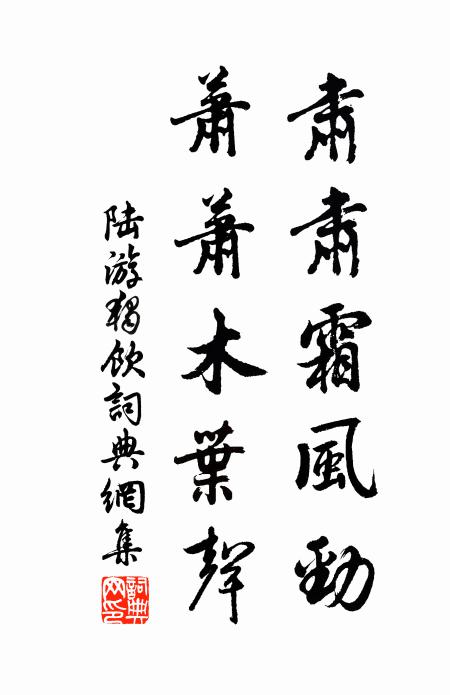 肅肅霜風勁
蕭蕭木葉聲
陸游獨飲詞典網集
詞典
网印